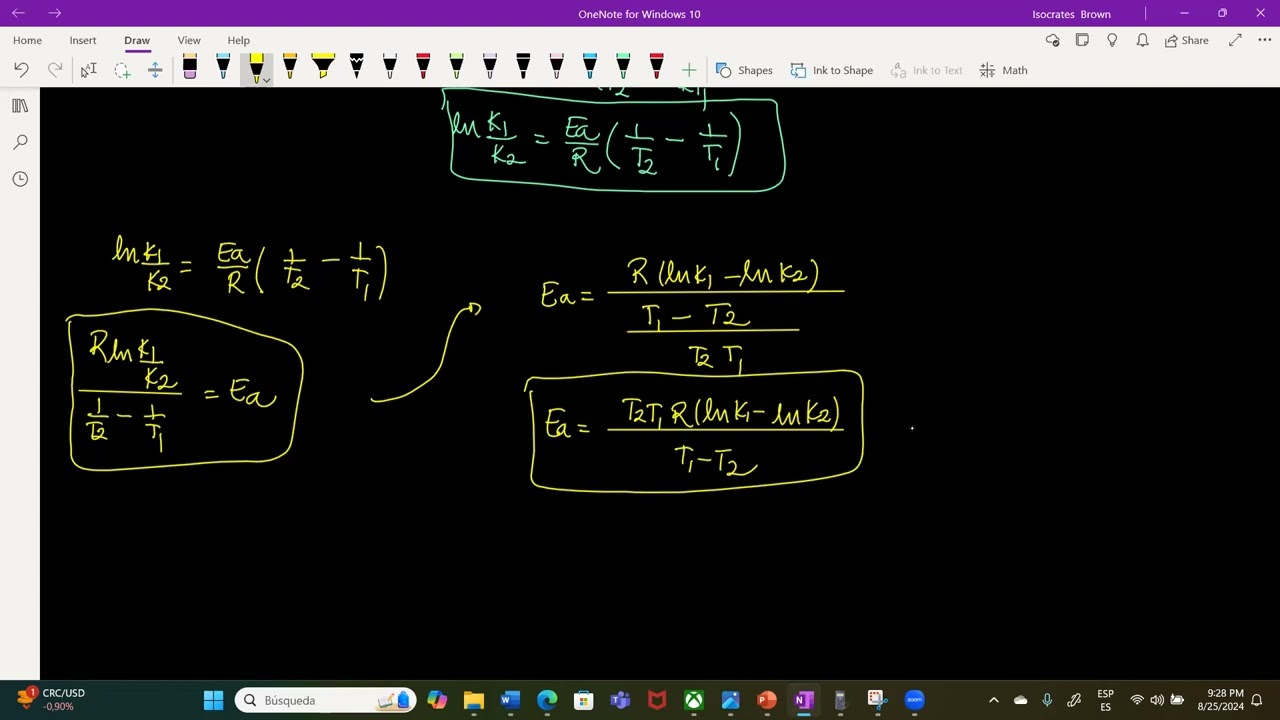 OneNote for Windows 10
Isocrates Brown
Home Insert Draw View Help
Share
Shapes Ink to Shape Ink to Text Math
ln K1/K2 = Ea/R (1/T2 - 1/T1)
ln K1/K2 = Ea/R (1/T2 - 1/T1)
R ln K1/K2 / (1/T2 - 1/T1) = Ea
Ea = R (ln K1 - ln K2) / ((T1 - T2) / (T2 T1))
Ea = T2T1 R (ln K1 - ln K2) / (T1 - T2)
1
CRC/USD
-0,90%
Búsqueda
ESP
ES
9:28 PM
8/25/2024